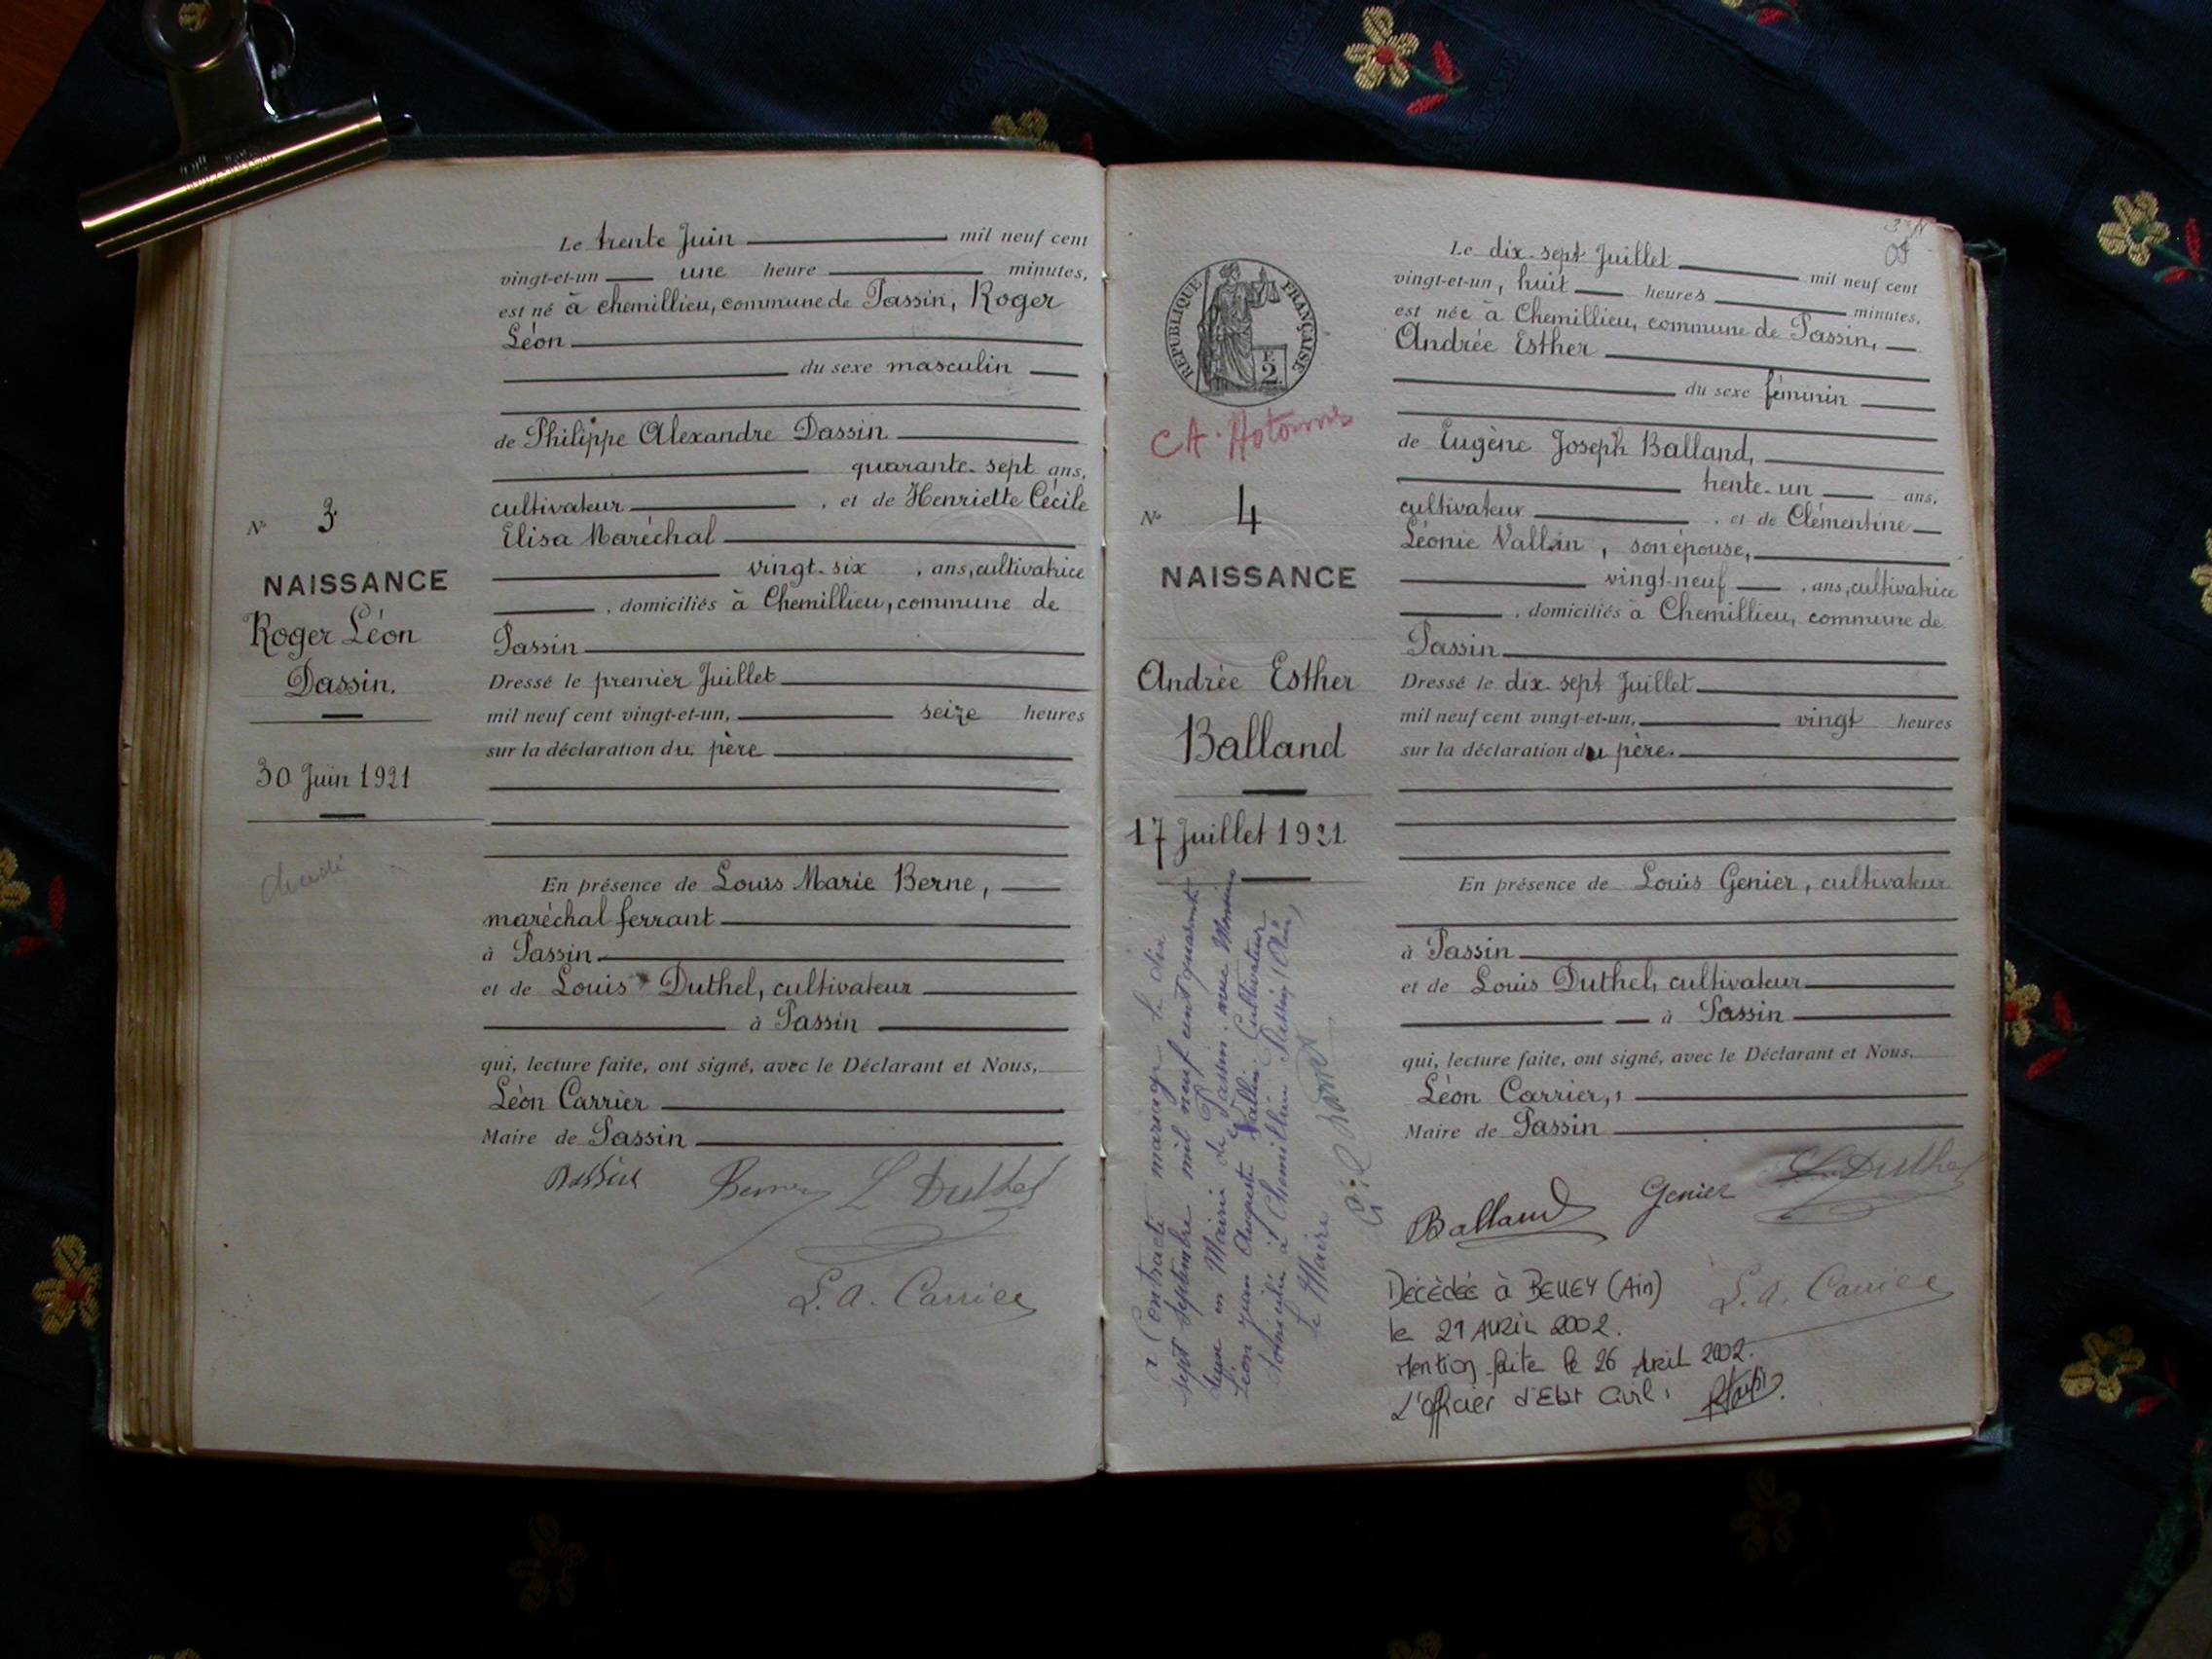 Le trente Juin mil neuf cent
vingt-et-un une heure minutes,
est né à Chemillieu, commune de Passin, Roger
Léon
du sexe masculin
de Philippe Alexandre Dassin
quarante-sept ans,
cultivateur , et de Henriette Cécile
Elisa Maréchal
vingt-six , ans, cultivatrice
, domiciliés à Chemillieu, commune de
Passin
Dressé le premier Juillet
mil neuf cent vingt-et-un, seize heures
sur la déclaration du père
En présence de Louis Marie Berne,
maréchal ferrant
à Passin
et de Louis Duthel, cultivateur
à Passin
qui, lecture faite, ont signé, avec le Déclarant et Nous,
Léon Carrier
Maire de Passin
Dassin Berne L Duthel
L. A. Carrier
N° 3
NAISSANCE
Roger Léon
Dassin.
30 Juin 1921
décédé
RÉPUBLIQUE FRANÇAISE
2
CA. Hotonnes
N° 4
NAISSANCE
Andrée Esther
Balland
17 Juillet 1921
Contracté mariage le dix
sept Septembre mil neuf cent quarante
deux en Mairie de Passin avec Monsieur
Léon Jean Auguste Vallin Cultivateur
domicilié à Chemillieu Passin (Ain)
le Maire
Le dix-sept Juillet mil neuf cent
vingt-et-un, huit heures minutes,
est née à Chemillieu, commune de Passin,
Andrée Esther
du sexe féminin
de Eugène Joseph Balland,
trente-un ans,
cultivateur , et de Clémentine
Léonie Vallin, son épouse,
vingt-neuf , ans, cultivatrice
, domiciliés à Chemillieu, commune de
Passin
Dressé le dix-sept Juillet
mil neuf cent vingt-et-un, vingt heures
sur la déclaration du père.
En présence de Louis Genier, cultivateur
à Passin
et de Louis Duthel, cultivateur
à Passin
qui, lecture faite, ont signé, avec le Déclarant et Nous,
Léon Carrier,
Maire de Passin
Balland Genier L. Duthel
L. A. Carrier
Décédée à BELLEY (Ain)
le 21 AVRIL 2002.
Mention faite le 26 Avril 2002.
L'officier d'Etat Civil :